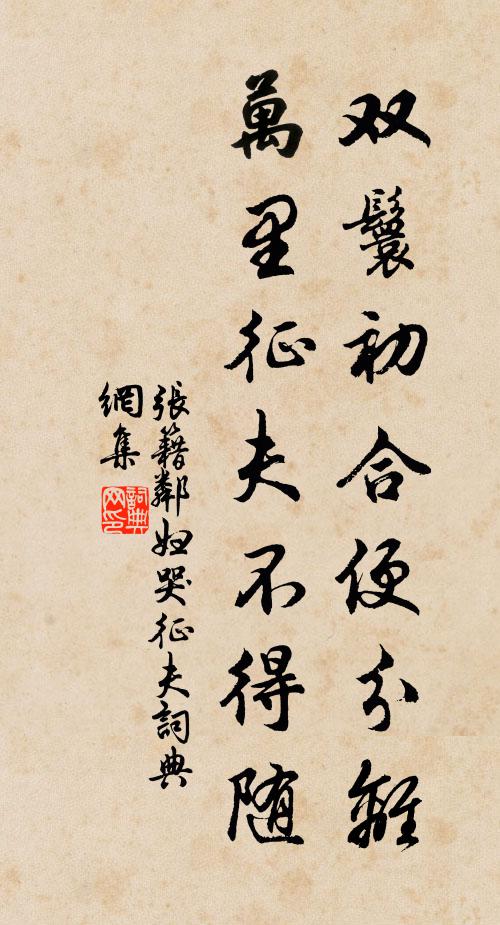 双鬟初合便分離
萬里征夫不得随
張籍鄰婦哭征夫詞典
網集
詞典
网印